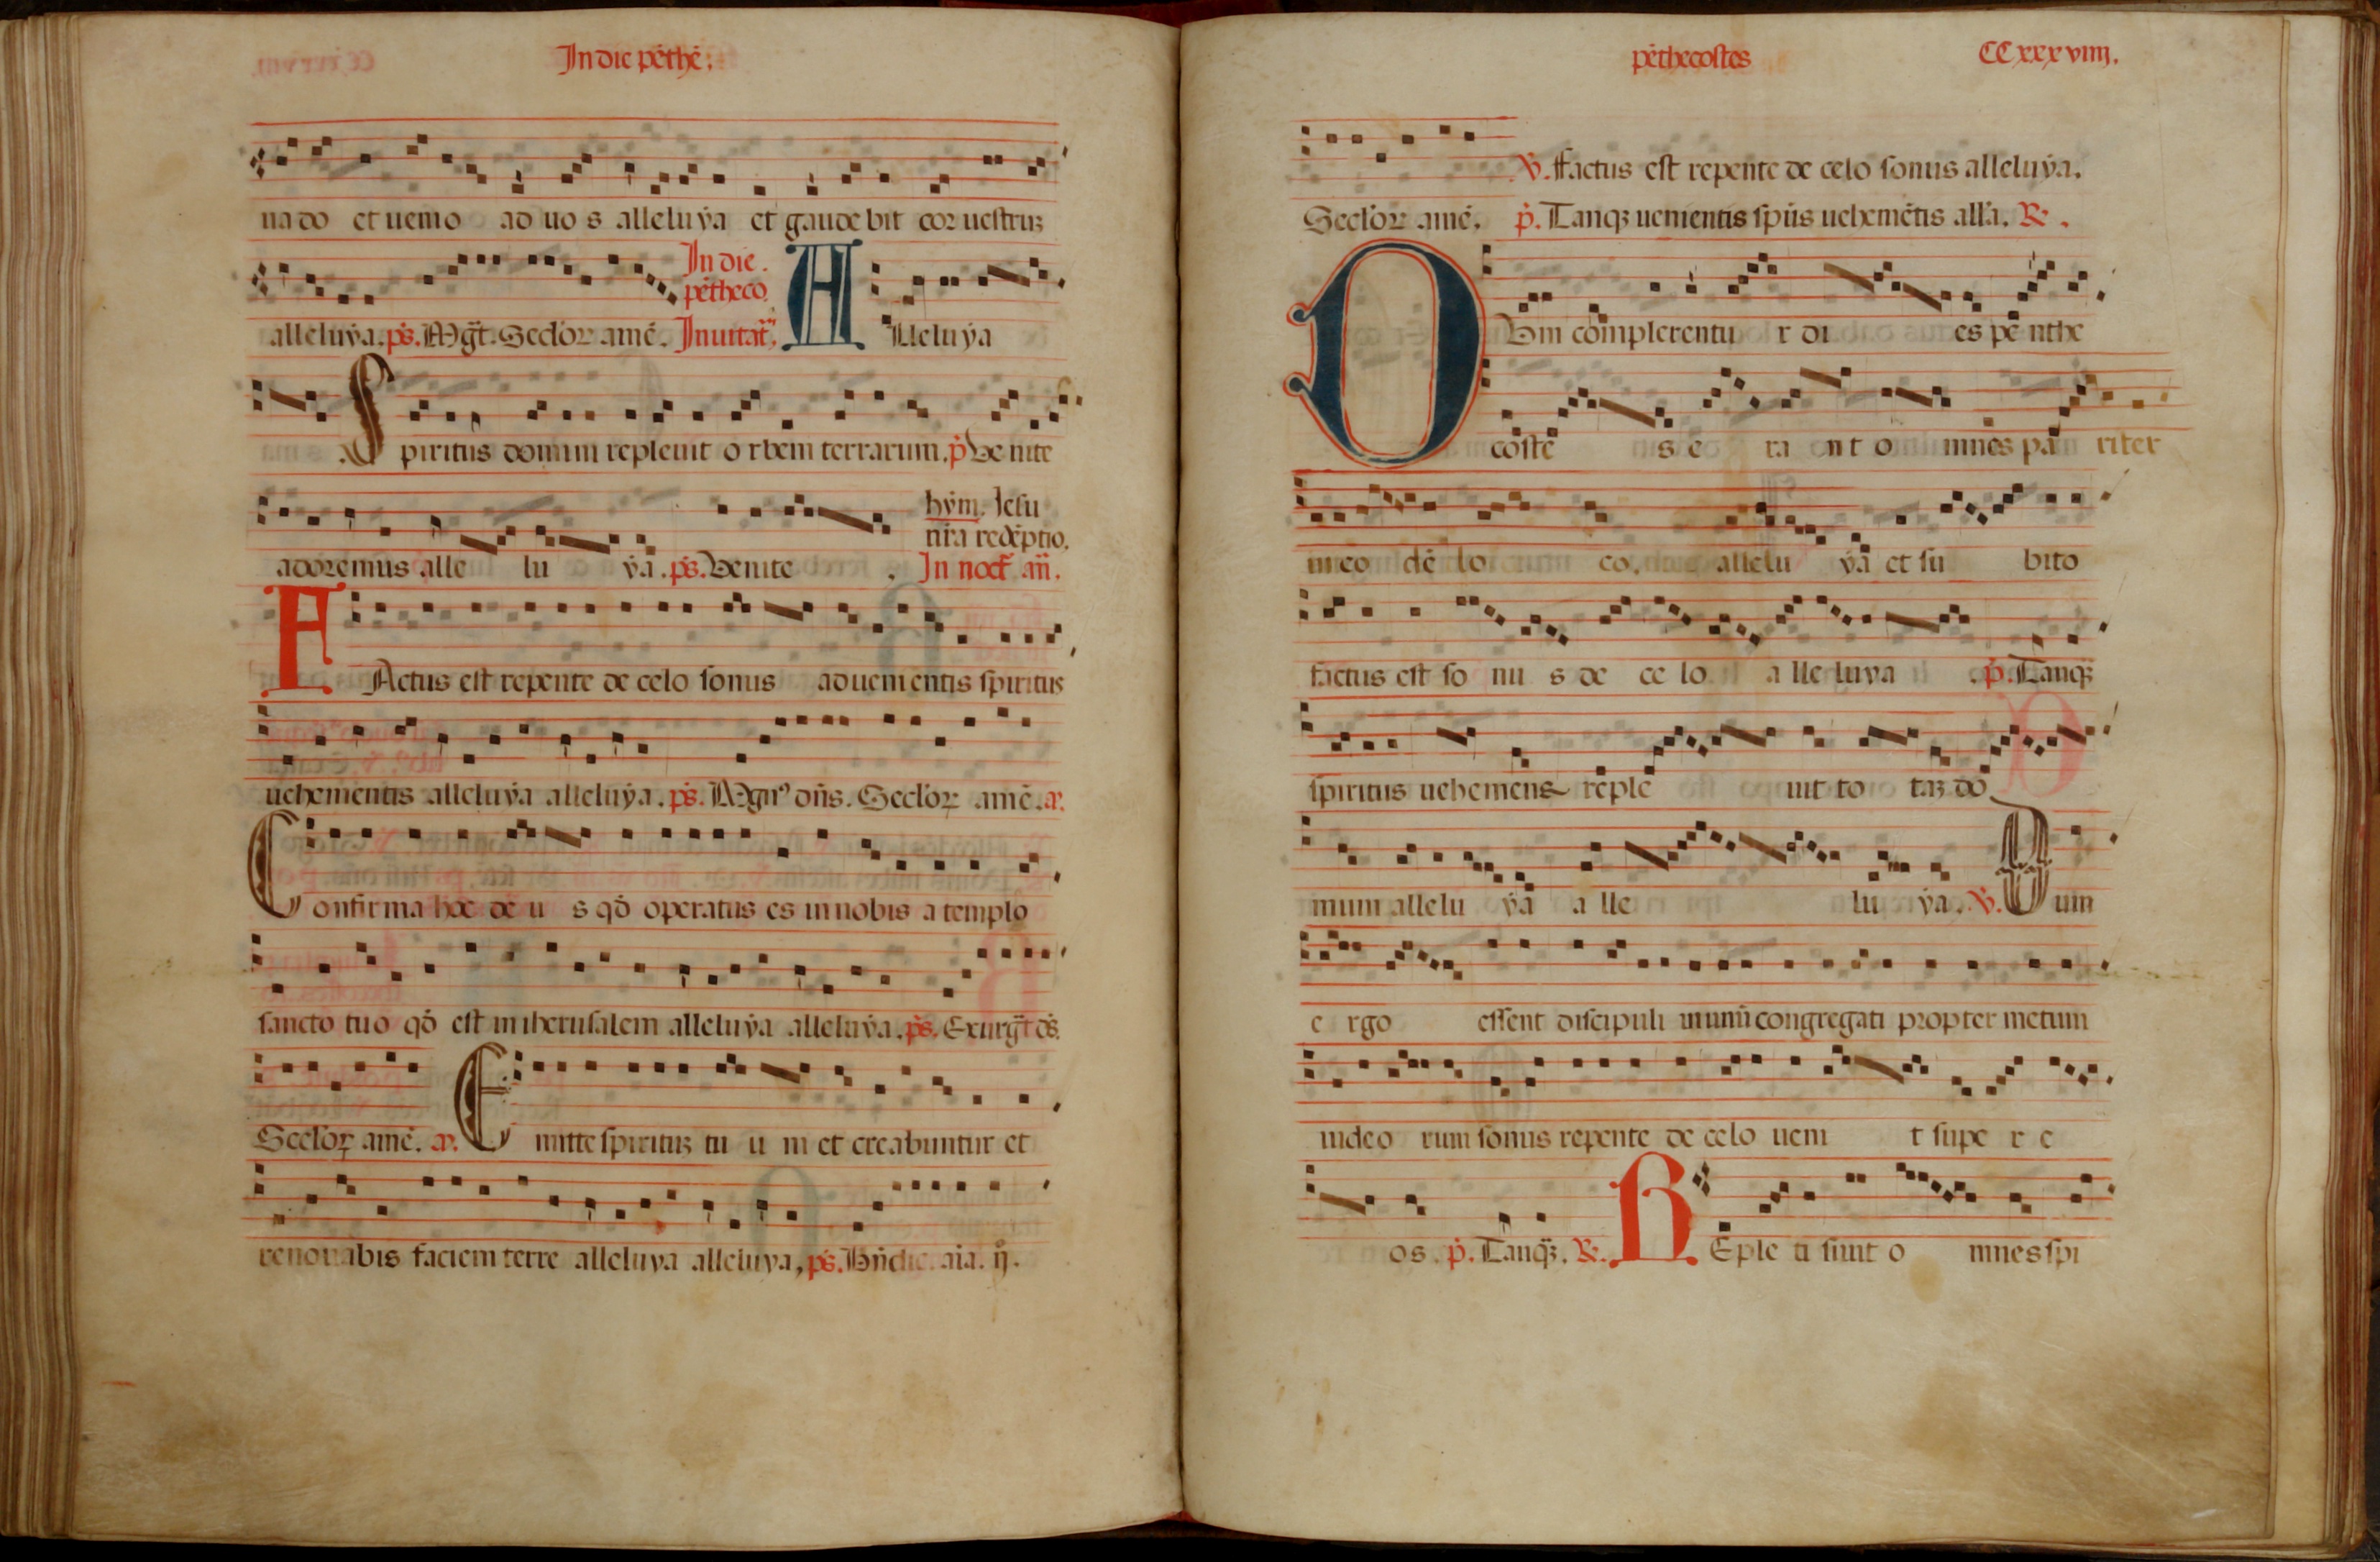 In die pēthē.
uado et uenio ad uos alleluẏa et gaudebit cor uestruꝫ
alleluẏa. ps. Mgt. Seclor amē. In die. pētheco. Inuitat. Alleluẏa
Spiritus domini repleuit orbem terrarum. p̄ Venite
adoremus alleluẏa. ps. Venite. hẏm. Iesu nr̄a redēptio. In noct an̄.
FActus est repente de celo sonus aduenientis spiritus
uehementis alleluẏa alleluẏa. ps. Mgn⁹ dn̄s. Seclor amē. a.
Confirma hoc deus qđ operatus es in nobis a templo
sancto tuo qđ est in iherusalem alleluẏa alleluẏa. ps. Exurgt ds.
Seclor amē. a. Emitte spirituꝫ tuum et creabuntur et
renouabis faciem terre alleluya alleluya, ps. Bn̄dic aīa. ij.
pēthecostes CCxxxviiij.
V. Factus est repente de celo sonus alleluẏa.
Seclor amē. p̄. Tanqꝫ uenientis sp̄us uehemētis all'a. R.
DVm complerentur dies penthe
costes erant omnes pariter
in eodē loco. alleluẏa et subito
factus est sonus de celo alleluya. p̄. Tanqꝫ
spiritus uehemens repleuit totaꝫ do
mum alleluẏa alleluẏa. V. Dum
ergo essent discipuli in unū congregati propter metum
iudeorum sonus repente de celo uenit super e
os. p̄. Tanqꝫ. R. REpleti sunt omnes spi